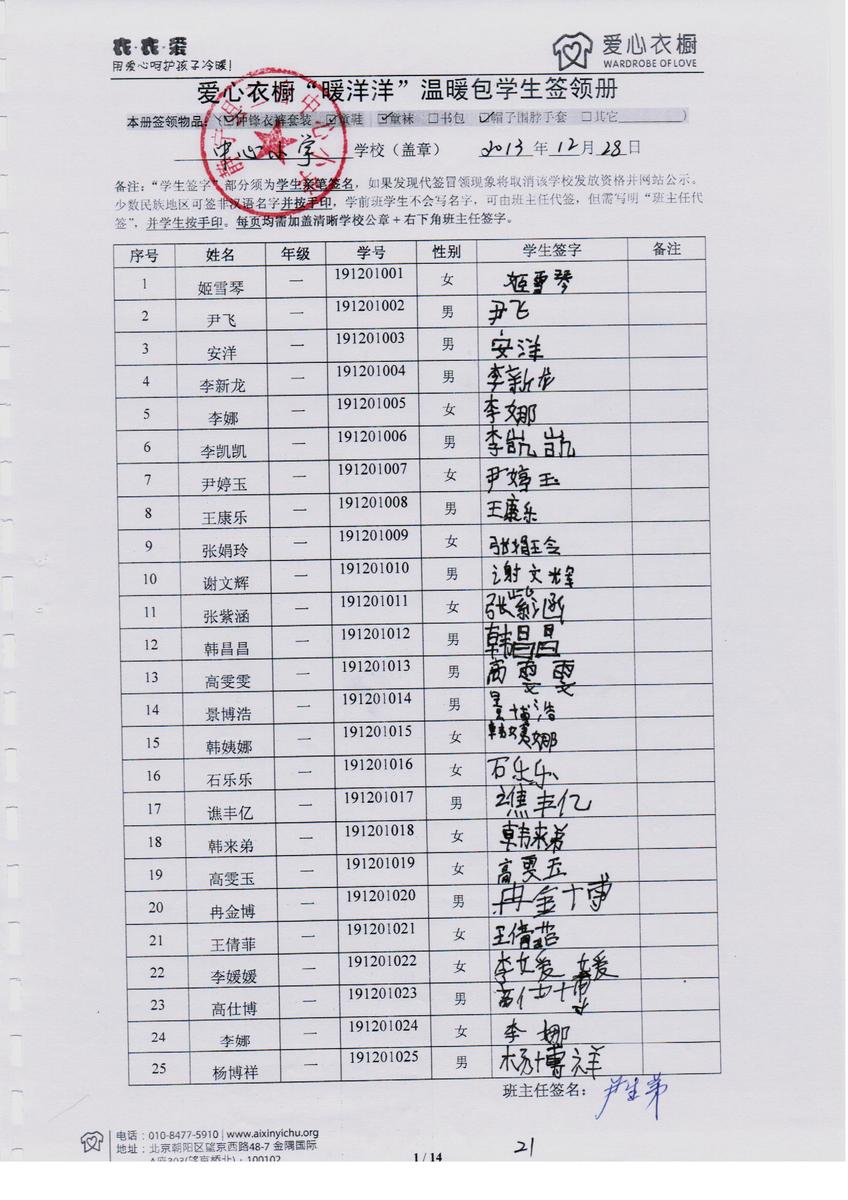 衣·衣·爱
用爱心呵护孩子冷暖!
爱心衣橱
WARDROBE OF LOVE
爱心衣橱“暖洋洋”温暖包学生签领册
本册签领物品:(☑冲锋衣裤套装 ☑童鞋 ☑童袜 □书包 ☑帽子围脖手套 □其它 )
中心小学 学校(盖章) 2013 年 12 月 28 日
备注:“学生签字”部分须为学生亲笔签名,如果发现代签冒领现象将取消该学校发放资格并网站公示。
少数民族地区可签非汉语名字并按手印,学前班学生不会写名字,可由班主任代签,但需写明“班主任代
签”,并学生按手印。每页均需加盖清晰学校公章+右下角班主任签字。
序号 姓名 年级 学号 性别 学生签字 备注
1 姬雪琴 一 191201001 女 姬雪琴
2 尹飞 一 191201002 男 尹飞
3 安洋 一 191201003 男 安洋
4 李新龙 一 191201004 男 李新龙
5 李娜 一 191201005 女 李娜
6 李凯凯 一 191201006 男 李凯凯
7 尹婷玉 一 191201007 女 尹婷玉
8 王康乐 一 191201008 男 王康乐
9 张娟玲 一 191201009 女 张娟玲
10 谢文辉 一 191201010 男 谢文辉
11 张紫涵 一 191201011 女 张紫涵
12 韩昌昌 一 191201012 男 韩昌昌
13 高雯雯 一 191201013 男 高雯雯
14 景博浩 一 191201014 男 景博浩
15 韩姨娜 一 191201015 女 韩姨娜
16 石乐乐 一 191201016 女 石乐乐
17 谯丰亿 一 191201017 男 谯丰亿
18 韩来弟 一 191201018 女 韩来弟
19 高雯玉 一 191201019 女 高雯玉
20 冉金博 一 191201020 男 冉金博
21 王倩菲 一 191201021 女 王倩菲
22 李媛媛 一 191201022 女 李媛媛
23 高仕博 一 191201023 男 高仕博
24 李娜 一 191201024 女 李娜
25 杨博祥 一 191201025 男 杨博祥
班主任签名:
电话:010-8477-5910 | www.aixinyichu.org
地址:北京朝阳区望京西路48-7 金隅国际
A座303(望京桥北)· 100102
1 / 14
21